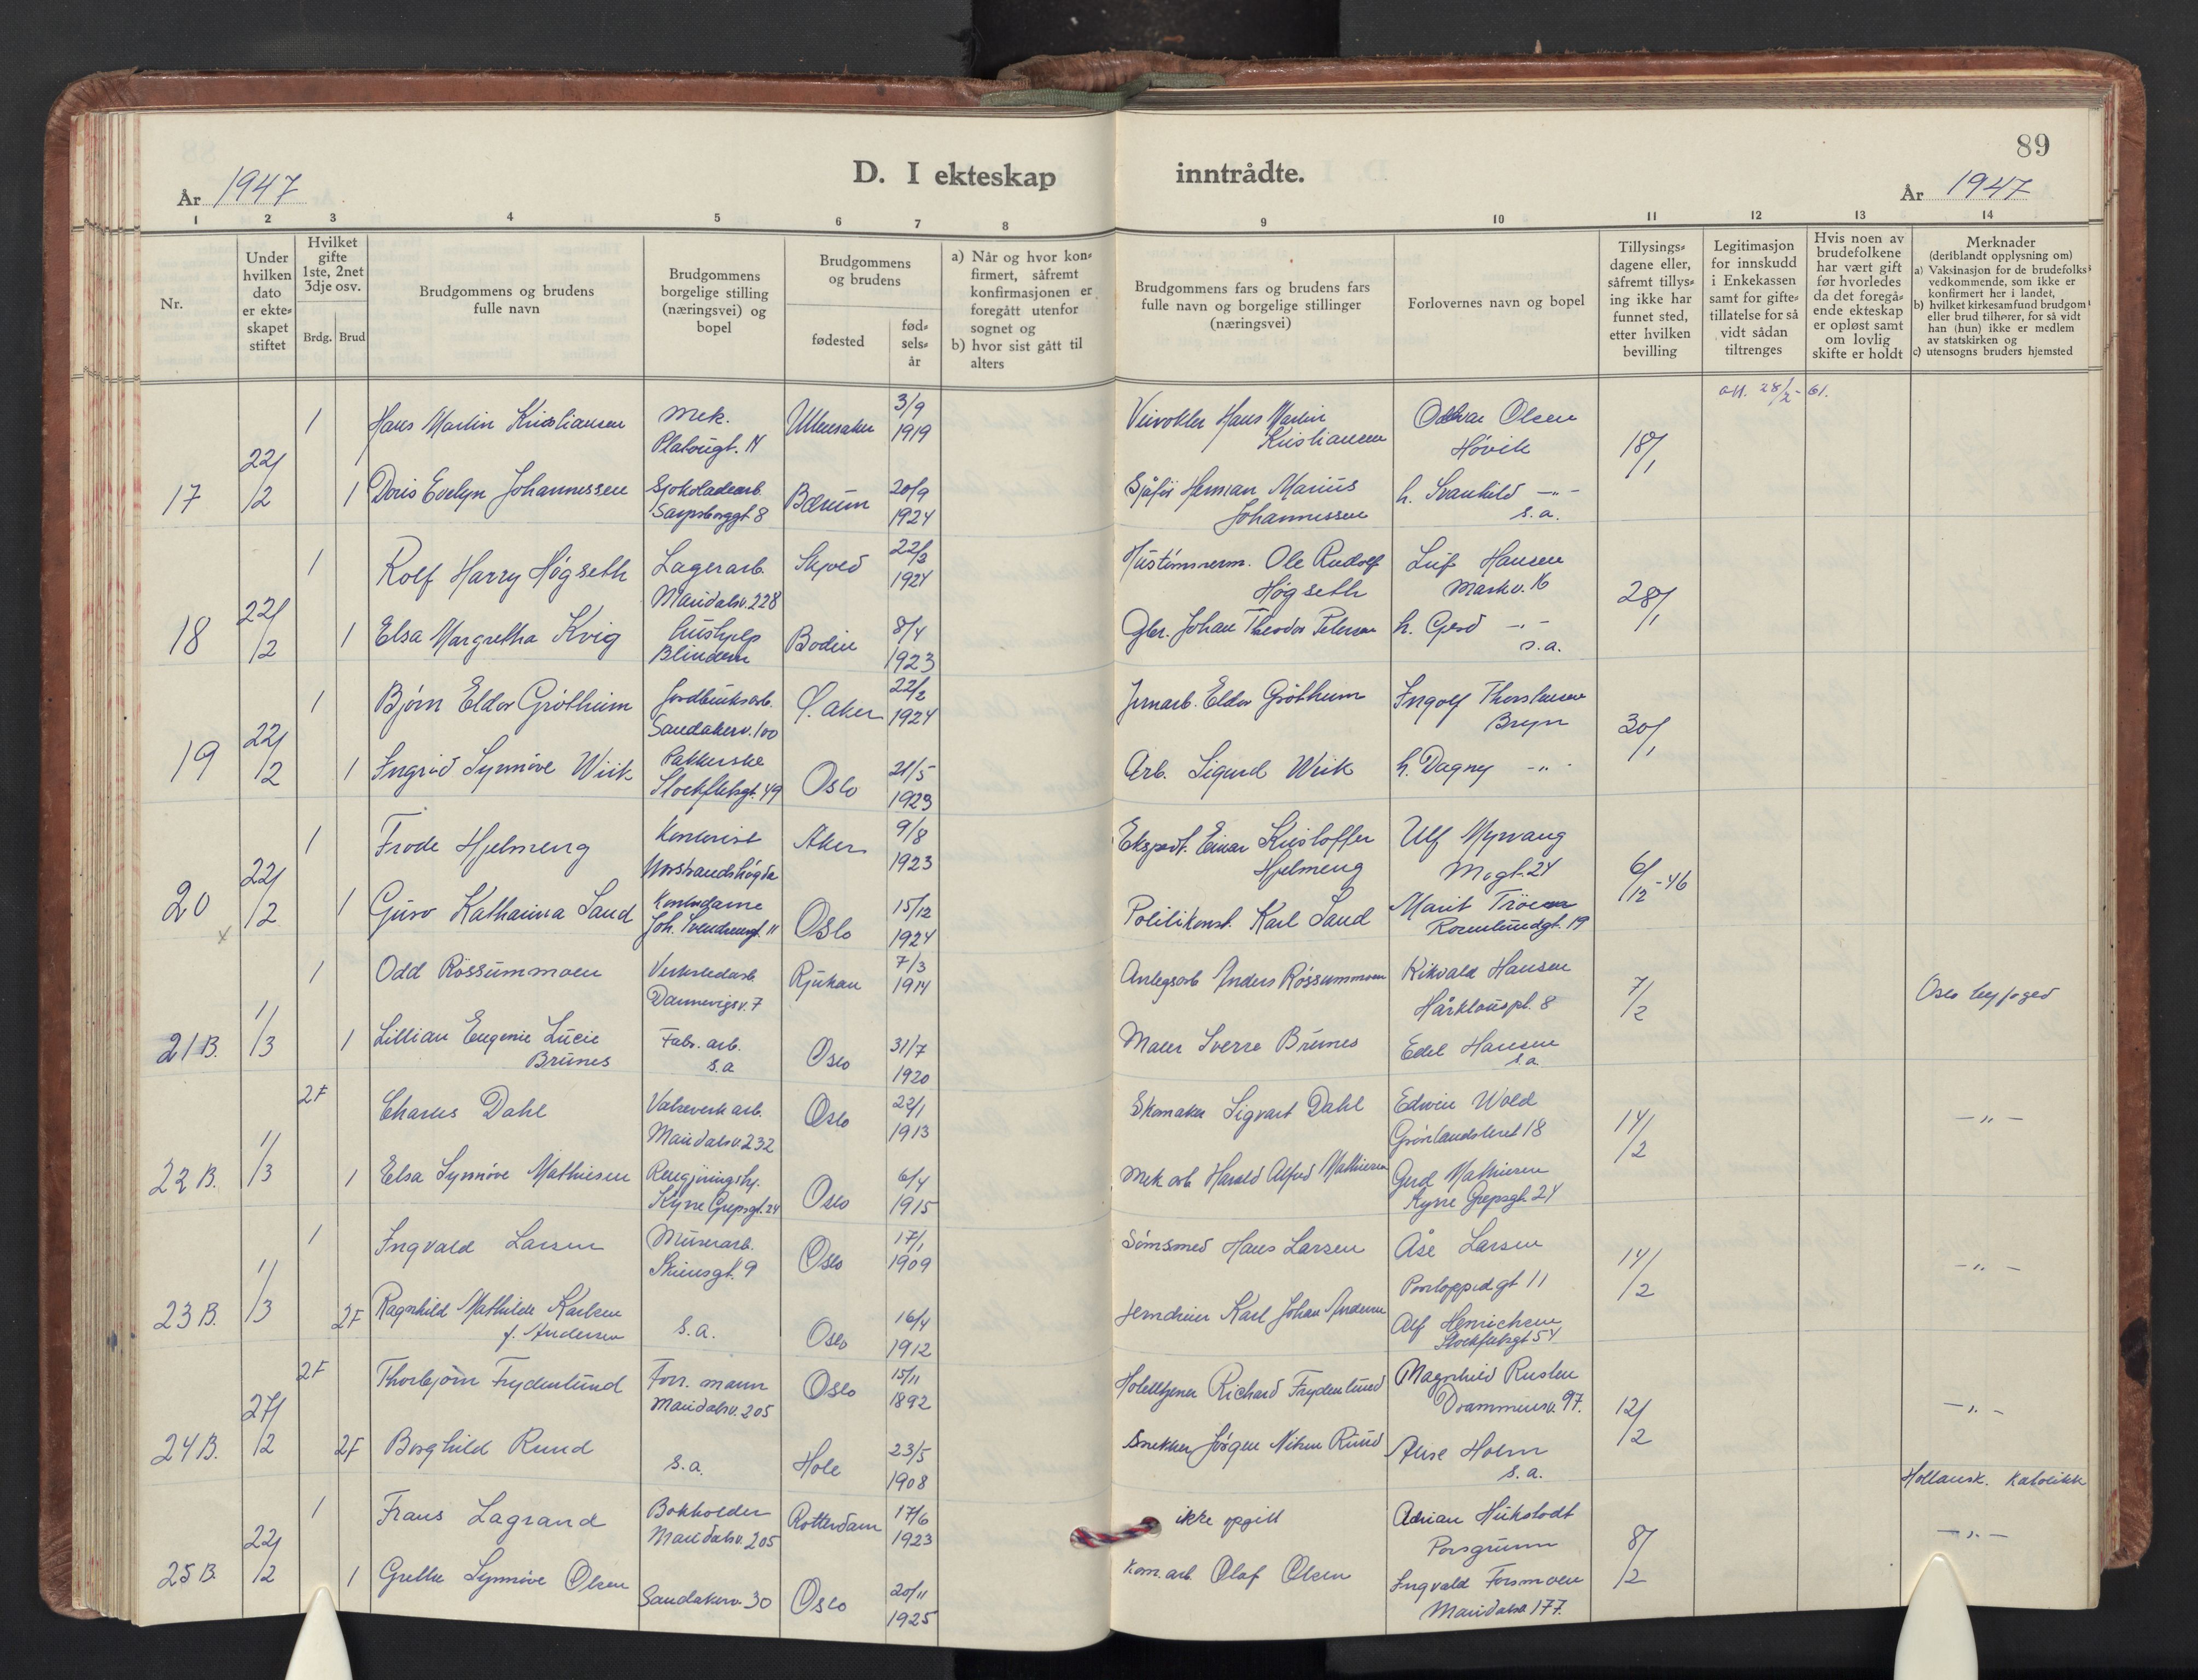 89
År 1947
D. I ekteskap inntrådte.
År 1947
1 2 3 4 5 6 7 8 9 10 11 12 13 14
Nr.
Under hvilken dato er ekteskapet stiftet
Hvilket gifte 1ste, 2net 3dje osv.
Brdg. Brud
Brudgommens og brudens fulle navn
Brudgommens borgelige stilling (næringsvei) og bopel
Brudgommens og brudens
fødested
fødselsår
a) Når og hvor konfirmert, såfremt konfirmasjonen er foregått utenfor sognet og
b) hvor sist gått til alters
Brudgommens fars og brudens fars fulle navn og borgelige stillinger (næringsvei)
Forlovernes navn og bopel
Tillysingsdagene eller, såfremt tillysing ikke har funnet sted, etter hvilken bevilling
Legitimasjon for innskudd i Enkekassen samt for giftetillatelse for så vidt sådan tiltrenges
Hvis noen av brudefolkene har vært gift før hvorledes da det foregående ekteskap er opløst samt om lovlig skifte er holdt
Merknader (deriblandt opplysning om)
a) Vaksinasjon for de brudefolks vedkommende, som ikke er konfirmert her i landet,
b) hvilket kirkesamfund brudgom eller brud tilhører, for så vidt han (hun) ikke er medlem av statskirken og
c) utensogns bruders hjemsted
att. 28/2-61.
1 Hans Martin Kristiansen Mek. Ullensaker 3/9 Veivokter Hans Martin Oddvar Olsen
Platougt. 14 1919 Kristiansen Høvik 18/1
17 22/2 1 Doris Evelyn Johannessen Sjokoladearb. Bærum 20/9 Sjåfør Herman Marius h. Svanhild -"-
Sarpsborggt 8 1924 Johannessen s.a.
1 Rolf Harry Høgseth Lagerarb. 22/2 Hustømrerm. Ole Rudolf Leif Hansen
Maridalsv. 228 1924 Høgseth Markv. 16 28/1
18 22/2 1 Elsa Margretha Kvig hushjelp Bodin 8/4 Gbr. Johan Theodor Petersen h. Gerd -"-
Blindern 1923 s.a.
1 Bjørn Eldor Grötheim Jordbruksarb. Ø. aker 22/2 Jernarb. Eldor Grötheim Ingolf Thorstensen
Sandakerv. 100 1924 Bryn 30/1
19 22/2 1 Ingrid Synnøve Wiik Pakkerske Oslo 21/5 Arb. Sigurd Wiik h. Dagny -"-
Stockfletsgt. 49 1923
1 Frode Hjelmeng Kontorist Aker 9/8 Ekspedt. Einar Kristoffer Ulf Myrvang
Norstrandshøgda 1923 Hjelmeng Mogt. 24 6/12-46
20 22/2 1 Guro Katharina Sand Kontordame Oslo 15/12 Politikonst. Karl Sand Marit
Joh. Svendsensgt. 11 1924 Rosenlundgt. 19
x
1 Odd Rössummoen Verkstedarb. Rjukan 7/3 Anlegsarb Anders Rössummoen Rikvald Hansen Oslo byfoged
Dannevigsv. 7 1914 Hårklouspl. 8 7/2
21 B. 1/3 1 Lillian Eugenie Lucie Fabr. arb. Oslo 31/7 Maler Sverre Brunes Edel Hansen
Brunes s.a 1920 s.a.
2F Charles Dahl Valseverk arb. Oslo 22/1 Skomaker Sigvart Dahl Edwin Wold -"-
Maridalsv. 232 1913 Grönlandsleret 18 14/2
22 B. 1/3 1 Elsa Synnöve Mathiesen Rengjöringshj. Oslo 6/4 Mek arb Harald Alfred Mathiesen Gerd Mathiesen
Kyrre Grepsgt. 24 1915 Kyrre Grepsgt. 24
1 Ingvald Larsen Murerarb. Oslo 17/1 Hans Larsen Åse Larsen -"-
Steensgt. 9 1909 11 14/2
23 B. 1/3 2F Ragnhild Mathilde Karlsen s.a. Oslo 16/4 Jerndreier Karl Johan Andersen Alf Henrichsen
f. Andersen 1912 Stockfletsgt 54
2F Thorbjørn Frydenlund Forr. mann Oslo 15/11 Hotelltjener Richard Frydenlund Magnhild Rusten
Maridalsv. 205 1892 Drammensv. 97. 12/2 -"-
24 B. 27/2 2F Borghild Ruud s.a. Hole 23/5 Snekker Jörgen Nilsen Ruud Alise Holm
1908 s.a.
Hollansk. Katolikk
1 Frans Lagrand Bokholder Rotterdam 17/6 ikke opgitt Adrian
Maridalsv. 205 1923 Porsgrunn 8/2 -"-
25 B 22/2 1 Grethe Synnöve Olsen Sandakerv. 30 Oslo 20/11 Kom. arb. Olaf Olsen Ingvald Forsmoen
1925 Maridalsv. 177.